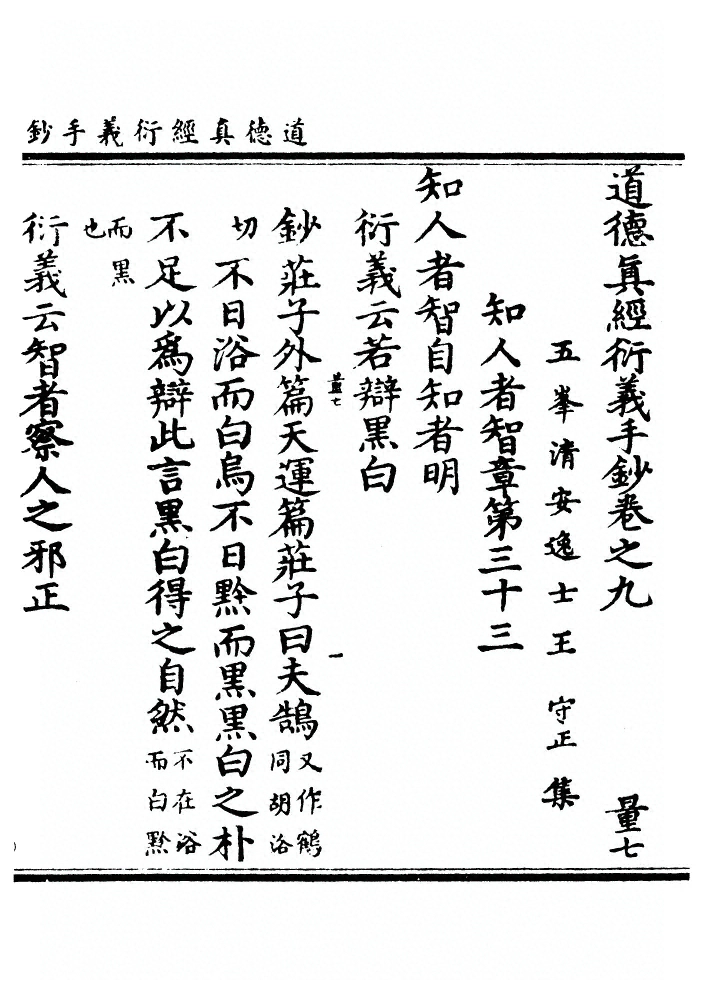 道德真經衍義手鈔
道德眞經衍義手鈔卷之九 量七
五峯清安逸士王守正集
知人者智章第三十三
知人者智自知者明
衍義云若辯黑白
量七 一
鈔莊子外篇天運篇莊子曰夫鵠又作鶴同胡洛
切不日浴而白烏不日黔而黑黑白之朴
不足以爲辯此言黑白得之自然不在浴而白黔
而黑也
衍義云智者察人之邪正